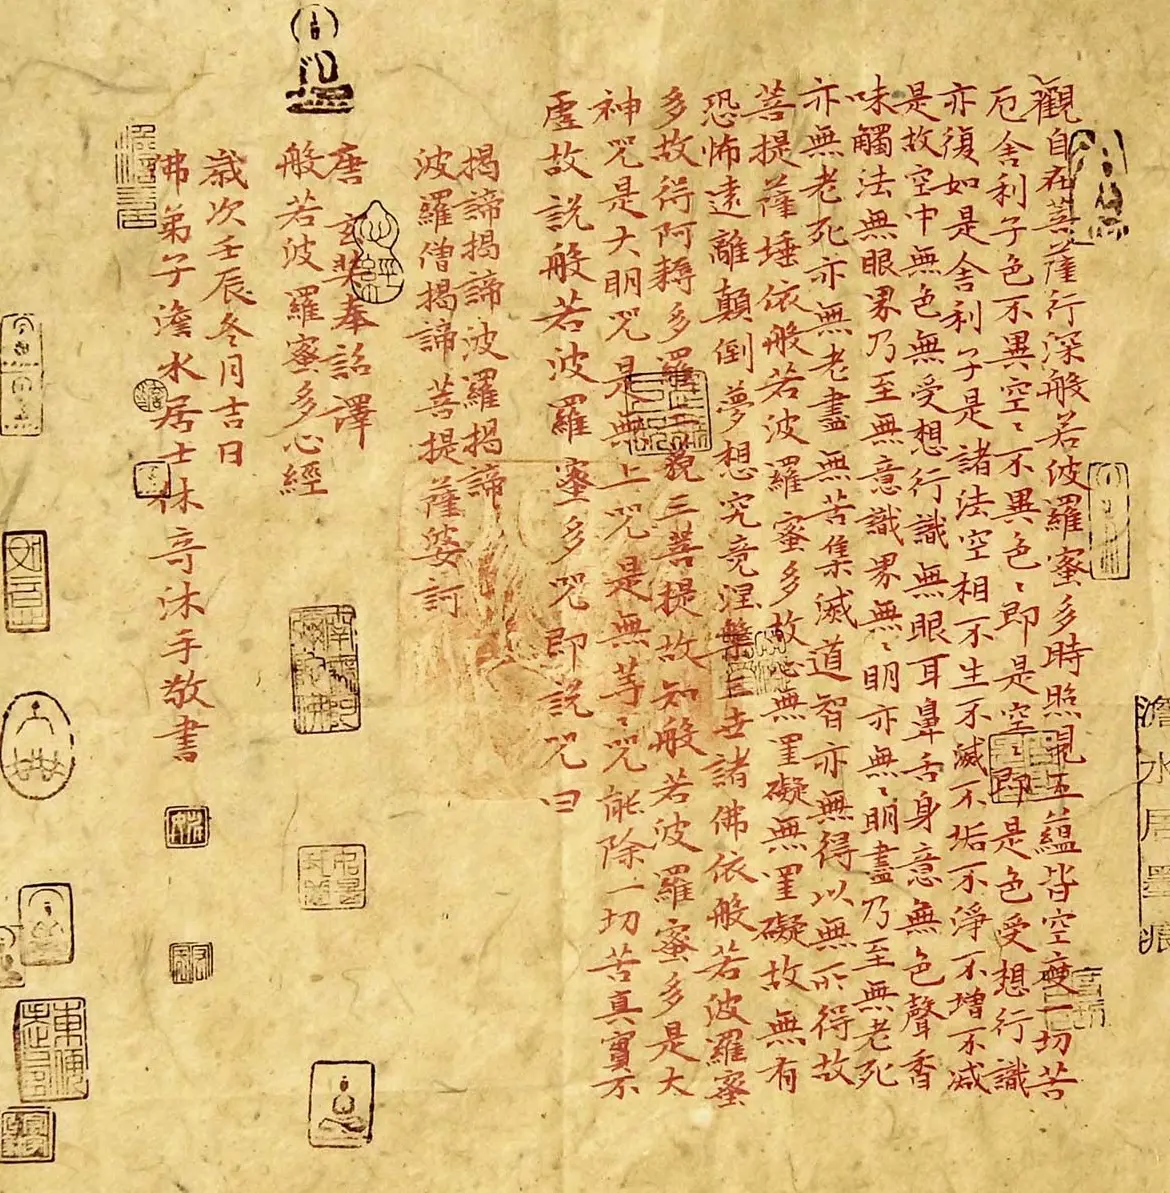 觀自在菩薩行深般若波羅蜜多時照見五蘊皆空度一切苦
厄舍利子色不異空〻不異色〻即是空〻即是色受想行識
亦復如是舍利子是諸法空相不生不滅不垢不淨不增不減
是故空中無色無受想行識無眼耳鼻舌身意無色聲香
味觸法無眼界乃至無意識界無〻明亦無〻明盡乃至無老死
亦無老死亦無老盡無苦集滅道智亦無得以無所得故
菩提薩埵依般若波羅蜜多故心無罣礙無罣礙故無有
恐怖遠離顛倒夢想究竟涅槃三世諸佛依般若波羅蜜
多故得阿耨多羅三藐三菩提故知般若波羅蜜多是大
神咒是大明咒是無上咒是無等〻咒能除一切苦真實不
虛故説般若波羅蜜多咒即説咒曰
揭諦揭諦波羅揭諦
波羅僧揭諦菩提薩婆訶
唐玄奘奉詔譯
般若波羅蜜多心經
歲次壬辰冬月吉日
弗弟子澹水居士林奇沐手敬書
澹水居墨痕
心經
南無阿彌陀佛